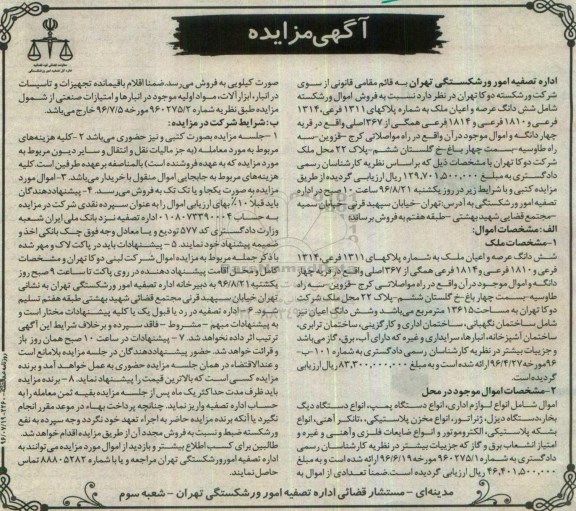 آگهی مزایده
اداره تصفیه امور ورشکستگی تهران به قائم مقامی قانونی از سوی
شرکت ورشکسته دوکا تهران در نظر دارد نسبت به فروش اموال ورشکسته
شامل شش دانگ عرصه و اعیان ملک به شماره پلاکهای ۱۳۱۱ فرعی، ۱۳۱۴
فرعی و ۱۸۱۰ فرعی و ۱۸۱۴ فرعی همگی از ۳۶۷ اصلی واقع در قریه
چهار دانگه و اموال موجود در آن واقع در راه مواصلاتی کرج -قزوین-سه
راه طاوسیه -بسمت چهار باغ-خ گلستان ششم-پلاک ۲۲ محل ملک
شرکت دوکا تهران با مشخصات ذیل که براساس نظریه کارشناسان رسمی
دادگستری به مبلغ ۱۲۹,۷۰۱,۵۰۰,۰۰۰ ریال ارزیابی گردیده از طریق
مزایده کتبی و با شرایط زیر در روز یکشنبه ۹۶/۸/۲۱ ساعت ۱۰ صبح در اداره
تصفیه امور ورشکستگی به آدرس: تهران -خیابان سپهبد قرنی-خیابان سمیه
-مجتمع قضایی شهید بهشتی -طبقه هفتم به فروش برساند:
الف: مشخصات اموال:
۱-مشخصات ملک
شش دانگ عرصه و اعیان ملک به شماره پلاکهای ۱۳۱۱ فرعی، ۱۳۱۴
فرعی و ۱۸۱۰ فرعی و ۱۸۱۴ فرعی همگی از ۳۶۷ اصلی واقع در قریه چهار
دانگه و اموال موجود در آن واقع در راه مواصلاتی کرج -قزوین-سه راه
طاوسیه -بسمت چهار باغ-خ گلستان ششم-پلاک ۲۲ محل ملک شرکت
دوکا تهران به مساحت ۱۳۶۱۵ مترمربع می‌باشد و شش دانگ اعیان نیز
شامل ساختمان نگهبانی، ساختمان اداری و کارگزینی، ساختمان ترابری،
ساختمان آشپزخانه، انبارها، سرایداری و غیره که دارای آب، برق، گاز می‌باشد
و جزییات بیشتر در نظریه کارشناسان رسمی دادگستری به شماره ۱۰۱-ب-
۹۶ مورخه ۹۶/۴/۲۷ ارائه شده است و به مبلغ ۸۳,۳۰۰,۰۰۰,۰۰۰ ریال ارزیابی
گردیده است.
۲-مشخصات اموال موجود در محل
اموال شامل انواع لوازم اداری، انواع دستگاه پمپ، انواع دستگاه دیگ
بخار، دستگاه دیزل، ژنراتور، انواع مخزن پلاستیکی، تانکر آهنی، انواع
بشکه پلاستیکی، الکتروموتور و انواع ضایعات فلزی و آهنی و غیره و
امتیاز انشعاب برق و گاز که جزییات بیشتر در نظریه کارشناسان رسمی
دادگستری به شماره ۹۶۰۲۷۵/۱ مورخه ۹۶/۶/۱۹ ارائه شده است و به مبلغ
۴۶,۴۰۱,۵۰۰,۰۰۰ ریال ارزیابی گردیده است. ضمناً تعدادی از اموال به
صورت کیلویی به فروش می‌رسد. ضمنا اقلام باقیمانده تجهیزات و تاسیسات
در انبار، ابزارآلات، مواد اولیه موجود در انبارها و امتیازات صنعتی از شمول
مزایده طبق نظریه شماره ۹۶۰۲۷۵/۲ مورخه ۹۶/۷/۵ خارج می‌باشد.
ب: شرایط شرکت در مزایده:
۱-جلسه مزایده بصورت کتبی و نیز حضوری می‌باشد ۲-کلیه هزینه‌های
مربوط به مورد معامله (به جز مالیات نقل و انتقال و سایر دیون مربوط به
مورد مزایده که به عهده فروشنده است) بالمناصفه بر عهده طرفین است. کلیه
هزینه‌های مربوط به جابجایی اموال منقول با خریدار می‌باشد. ۳-اموال مورد
مزایده به صورت یکجا و یا تک تک به فروش می‌رسد. ۴- پیشنهاد دهندگان
باید قبلا ۱۰٪ بهای ارزیابی اموال را به عنوان سپرده نقدی شرکت در مزایده
به حساب ۰۱۰۸۰۷۳۳۹۰۰۰۴ اداره تصفیه نزد بانک ملی ایران شعبه
وزارت دادگستری کد ۵۷۷ تودیع و یا معادل وجه فوق چک بانکی اخذ و
ضمیمه پیشنهاد خود نمایند. ۵- پیشنهادات باید در پاکت لاک و مهر شده
با ذکر جمله مربوط به مزایده اموال شرکت لبنی دوکا تهران و مشخصات
کامل و محل اقامت پیشنهاد دهنده در روی پاکت تا ساعت ۹ صبح روز
یکشنبه ۹۶/۸/۲۱ به دبیرخانه اداره تصفیه امور ورشکستگی تهران به نشانی
تهران خیابان سپهبد قرنی مجتمع قضائی شهید بهشتی طبقه هفتم تسلیم
شود. ۶- اداره تصفیه در رد یا قبول یک یا کلیه پیشنهادات مختار است و
به پیشنهادات مبهم -مشروط - فاقد سپرده و بر خلاف شرایط این آگهی
ترتیب اثر داده نخواهد شد. ۷- پیشنهادات در ساعت ۱۰ صبح همان روز باز
و قرائت خواهد شد. حضور پیشنهاددهندگان در جلسه مزایده بلامانع است
و عندالاقتضاء در همان جلسه مزایده حضوری به عمل خواهد آمد و برنده
مزایده کسی است که بالاترین قیمت را پیشنهاد نماید. ۸- برنده مزایده
باید ظرف مدت حداکثر یک ماه پس از جلسه مزایده بقیه ثمن معامله را به
حساب اداره تصفیه واریز نماید. چنانچه پرداخت بهاء در موعد مقرر انجام
نگیرد و یا آنکه برنده مزایده حاضر به اجراء تعهد خود نگردد وجه سپرده به نفع
ورشکسته ضبط و نسبت به فروش مجدد آن از طریق مزایده اقدام خواهد شد.
طالبین برای کسب اطلاع بیشتر و بازدید از اموال مورد مزایده می‌توانند به
اداره تصفیه امور ورشکستگی تهران مراجعه و یا با شماره ۸۸۸۰۵۲۸۲ تماس
حاصل نمایند.
مدینه‌ای - مستشار قضائی اداره تصفیه امور ورشکستگی تهران - شعبه سوم